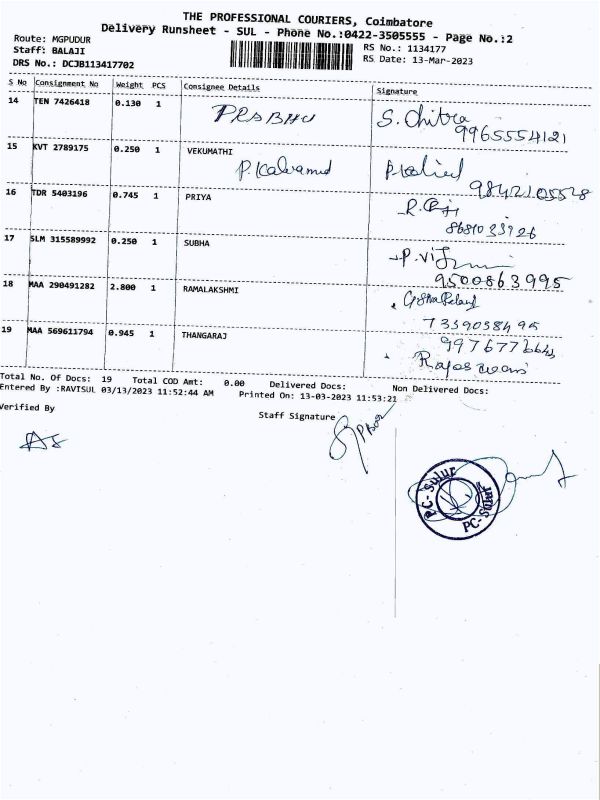 THE PROFESSIONAL COURIERS, Coimbatore
Delivery Runsheet - SUL - Phone No.:0422-3505555 - Page No.:2
Route: MGPUDUR
RS No.: 1134177
Staff: BALAJI
RS Date: 13-Mar-2023
DRS No.: DCJB113417702
S No Consignment No Weight PCS Consignee Details Signature
14 TEN 7426418 0.130 1 PRABHU S. Chitra
9965554121
15 KVT 2789175 0.250 1 VEKUMATHI
9842105528
16 TDR 5403196 0.745 1 PRIYA
8681033926
17 SLM 315589992 0.250 1 SUBHA
9500863995
18 MAA 290491282 2.800 1 RAMALAKSHMI
7339038495
19 MAA 569611794 0.945 1 THANGARAJ
Total No. Of Docs: 19 Total COD Amt: 0.00 Delivered Docs: Non Delivered Docs:
Entered By :RAVISUL 03/13/2023 11:52:44 AM Printed On: 13-03-2023 11:53:21
Verified By
Staff Signature
PC-Sulur
PC-Sulur